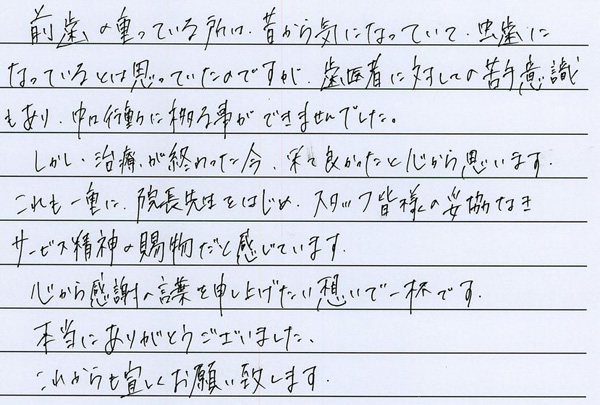 前歯の重っている所は、昔から気になっていて、虫歯に
なっているとは思っていたのですが、歯医者に対しての苦手意識
もあり、中々行動に移る事ができませんでした。
しかし、治療が終わった今、来て良かったと心から思います。
これも一重に、院長先生をはじめ、スタッフ皆様の妥協なき
サービス精神の賜物だと感じています。
心から感謝の言葉を申し上げたい想いで一杯です。
本当にありがとうございました。
これからも宜しくお願い致します。